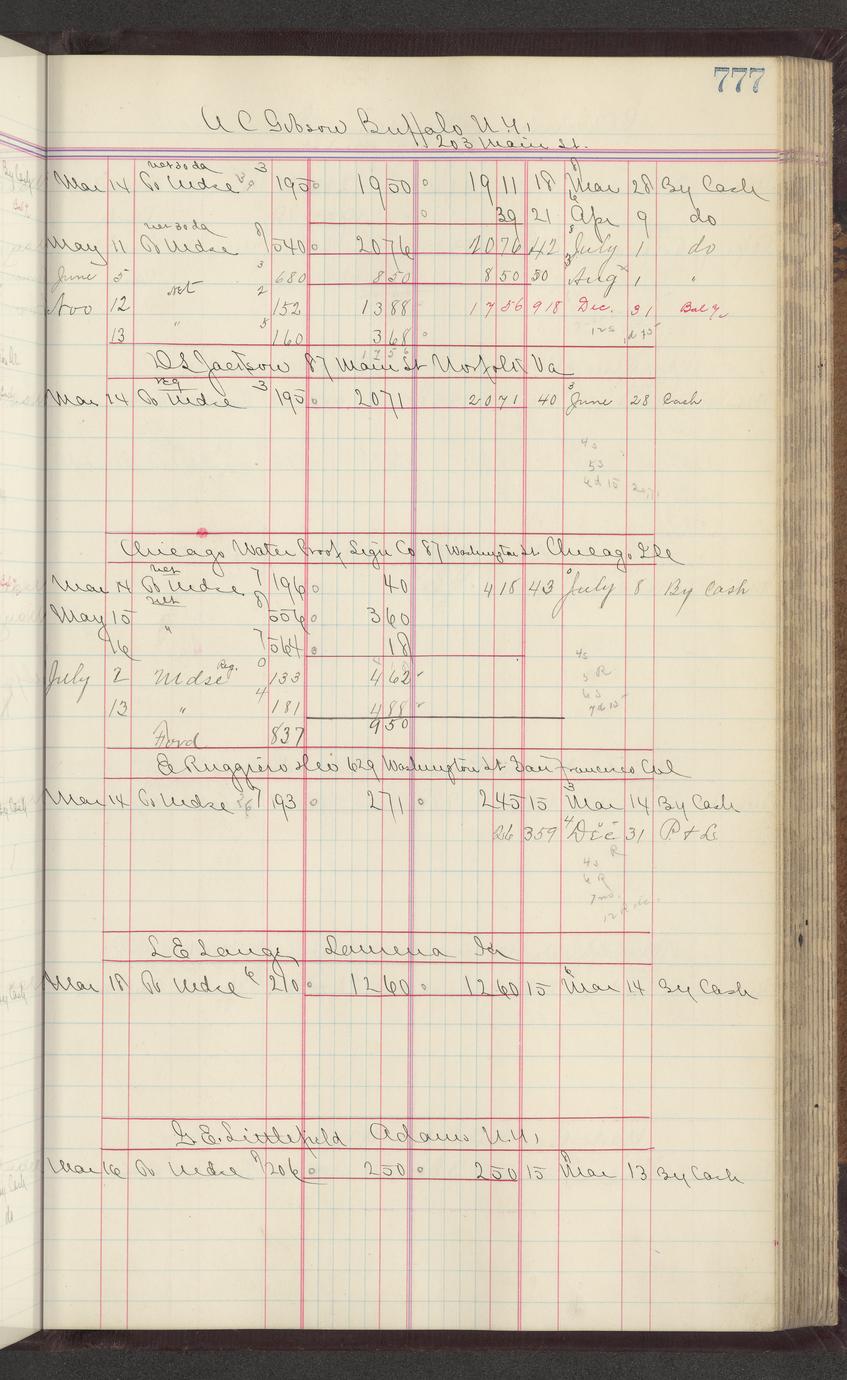 777
A C Gibson Buffalo N.Y.
203 Main St.
net 30 da
Mar 14 To Mdse 3 195 1950 1911 18 Mar 28 By Cash
39 21 Apr 9 do
net 30 da
May 11 To Mdse 8 540 2076 2076 42 July 1 do
June 5 3 680 850 850 50 Aug 1 "
Nov 12 net 2 152 1388 1756 918 Dec. 31 Bal
13 " 5 160 368
1756
D.S. Jackson 87 Main St Norfolk Va
reg
Mar 14 To Mdse 3 195 2071 2071 40 June 28 Cash
4s
5s
6d15 2071
Chicago Water Proof Sign Co 87 Washington St. Chicago Ill
net
Mar 14 To Mdse 7 196 40 418 43 July 8 By Cash
net
May 15 " 8 556 360
16 7 564 18
July 2 Mdse Reg. 0 133 462
13 " 4 181 488
950
Ford 837
4s
5 R
6s
7d15
E Ruggiero 629 Washington St San Francisco Cal
Mar 14 To Mdse 7 193 271 245 15 Mar 14 By Cash
26 359 Dec 31 P & L
4s R
6 R
L E Lange Ia
Mar 18 To Mdse 6 210 1260 1260 15 Mar 14 By Cash
G.E. Littlefield Adams N.Y.
Mar 16 To Mdse 9 206 250 250 15 Mar 13 By Cash